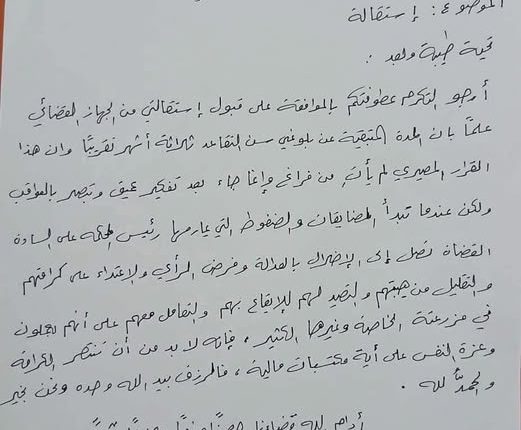 الموضوع: إستقالة
تحية طيبة وبعد :
أرجو التكرم عطوفتكم بالموافقة على قبول إستقالتي من الجهاز القضائي
علماً بان المدة المتبقية عن بلوغي سن التقاعد ثلاثة أشهر تقريباً وان هذا
القرار المصيري لم يأت من فراغ وإنما جاء بعد تفكير عميق وتبصر بالعواقب
ولكن عندما تبدأ المضايقات والضغوط التي يمارسها رئيس المحكمة على السادة
القضاة تصل إلى الإخلال بالعدالة وفرض الرأي والإعتداء على كرامتهم
والتقليل من هيبتهم والتصيد لهم للإيقاع بهم والتعامل معهم على أنهم يعملون
في مزرعته الخاصة وغيرها الكثير ، فإنه لا بد من أن تنتصر الكرامة
وعزة النفس على أية مكتسبات مالية ، فالرزق بيد الله وحده ونحن بخير
والحمد لله .
أدام الله قضاءنا